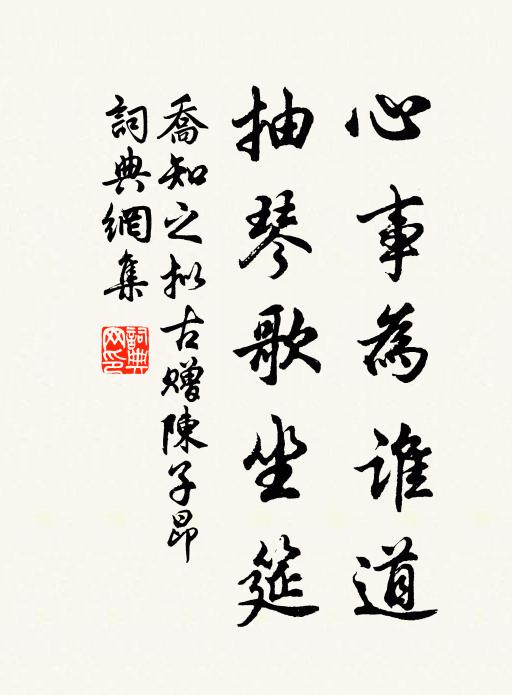 心事為誰道
抽琴歌坐筵
喬知之拟古贈陳子昂
詞典網集
詞典网印